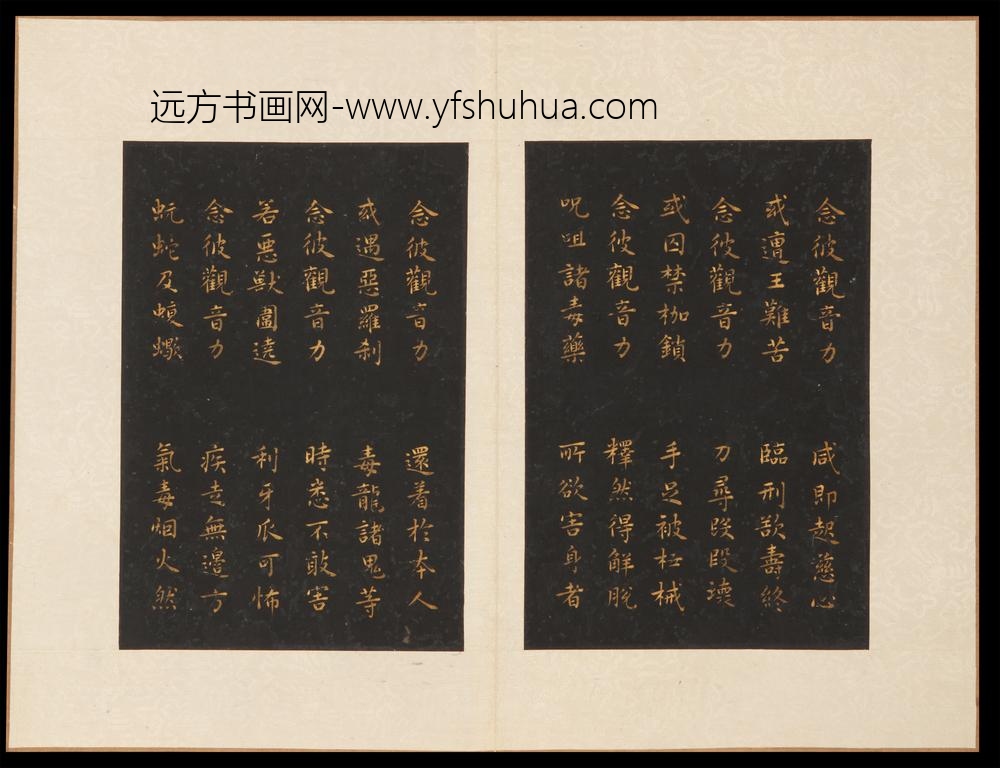 远方书画网-www.yfshuhua.com
念彼觀音力 咸即起慈心
或遭王難苦 臨刑欲壽終
念彼觀音力 刀尋段段壞
或囚禁枷鎖 手足被杻械
念彼觀音力 釋然得解脫
呪咀諸毒藥 所欲害身者
念彼觀音力 還着於本人
或遇惡羅刹 毒龍諸鬼等
念彼觀音力 時悉不敢害
若惡獸圍遶 利牙爪可怖
念彼觀音力 疾走無邊方
蚖蛇及蝮蠍 氣毒烟火然